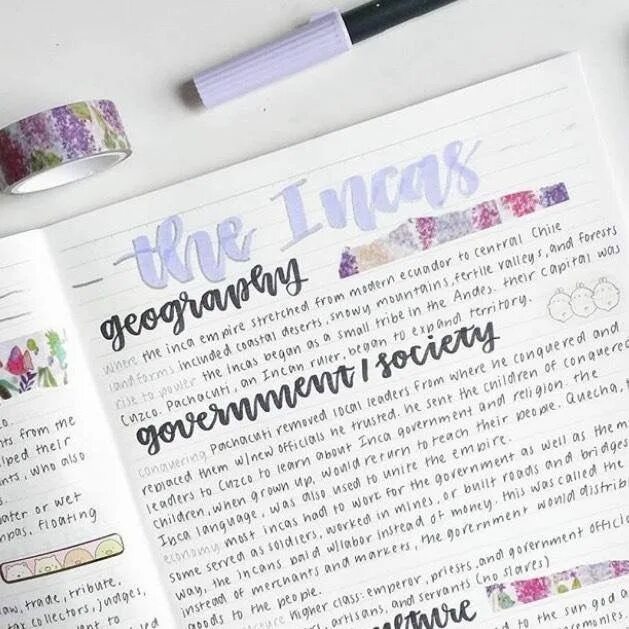 the Incas
geography
where the inca empire stretched from modern ecuador to central Chile
landforms included coastal deserts, snowy mountains, fertile valleys, and forests
rise to power the Incas began as a small tribe in the Andes. their capital was
Cuzco. Pachacuti, an Incan ruler, began to expand territory.
government/society
conquering Pachacuti removed local leaders from where he conquered and
replaced them w/new officials he trusted. he sent the children of conquered
leaders to Cuzco to learn about Inca government and religion. the
children, when grown up, would return to teach their people. Quecha, t
Inca language, was also used to unite the empire.
economy most incas had to work for the government as well as them
some served as soldiers, worked in mines, or built roads and bridges
way, the incans paid w/labor instead of money. this was called the
instead of merchants and markets, the government would distrib
goods to the people.
higher class: emperor, priests, and government offici
artisans, and servants (no slaves)
to the sun god a
ceremonies.
co.
nts from the
lped their
nts, who also
s.
ater or wet
mpas, floating
law, trade, tribute,
tax collectors, judges,